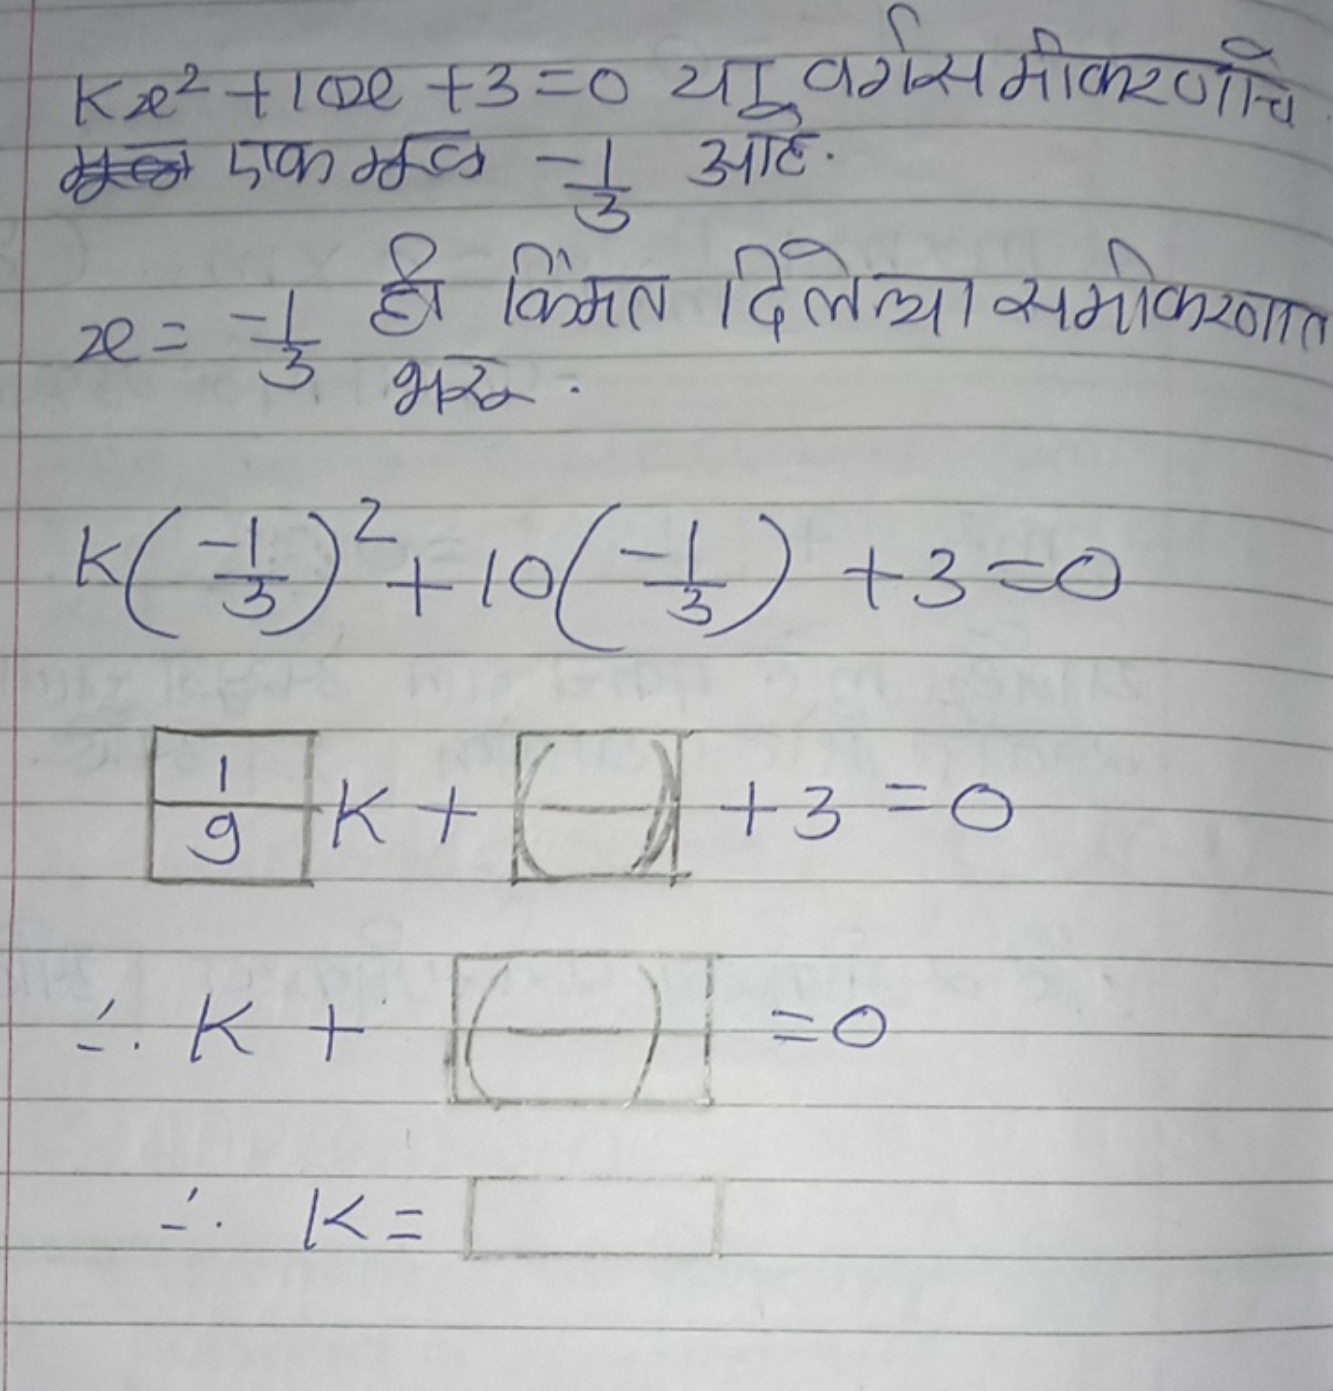 Kx² + 10x + 3 = 0 या वर्गसमीकरणाचे
एक मूळ -1/3 आहे.
x = -1/3 ही किंमत दिलेल्या समीकरणात
भरू.
K(-1/3)² + 10(-1/3) + 3 = 0
1/9 K + (—) + 3 = 0
∴ K + (—) = 0
∴ K =